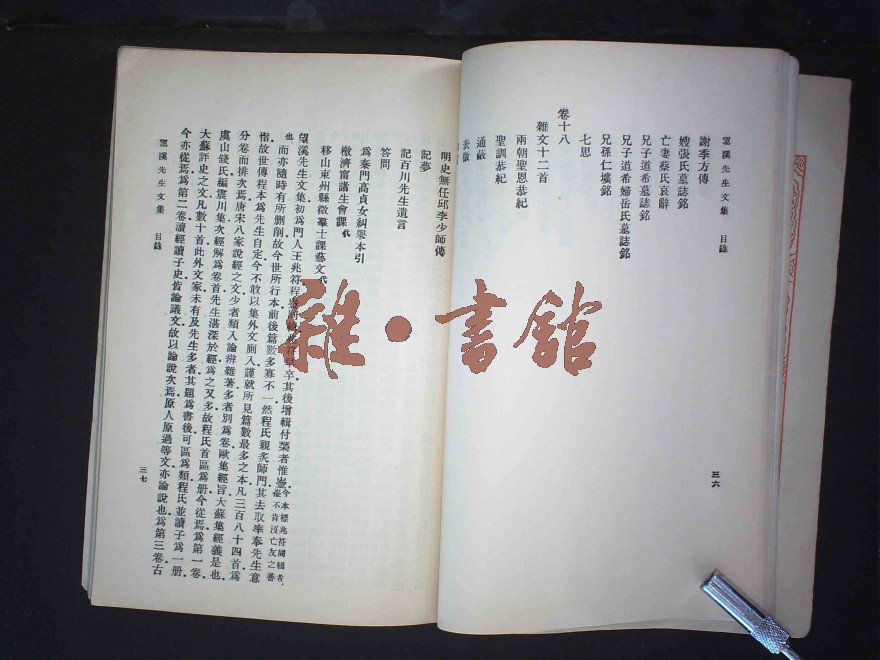 望溪先生文集 目錄
謝季方傳
嫂張氏墓誌銘
亡妻蔡氏哀辭
兄子道希墓誌銘
兄子道希婦岳氏墓誌銘
兄孫仁壙銘
七思
卷十八
雜文十二首
兩朝聖恩恭紀
聖訓恭紀
通蔽
三六
明史無任邱李少師傳
記夢
記百川先生遺言
答問
爲秦門高貞女糾舉本引
檄濟甯諸生會課代
移山東州縣徵羣士課藝文代
望溪先生文集初爲門人王兆符程崟 早卒其後增輯付槧者惟崟今本標兆符同輯者崟不肯沒亡友之善
也而亦隨時有所刪削故今世所行本前後篇數多寡不一然程氏親炙師門其去取率奉先生意
指故世傳程本爲先生自定今不敢以集外文厠入謹就所見篇數最多之本凡三百八十四首爲
分卷而排次焉唐宋八家說經之文少者類入論辨雜著多者別爲卷歐集經旨大蘇集經義是也
虞山錢氏編震川集次經解爲卷首先生湛深於經爲之又多故程氏首區爲册今從焉爲第一卷
大蘇評史之文凡數十首此外文家未有及先生多者其題爲書後可區爲類程氏並讀子爲一册
今亦從焉爲第二卷讀經讀子史皆論議文故以論說次焉原人原過等文亦論說也爲第三卷古
望溪先生文集 目錄
三七
雜·書館